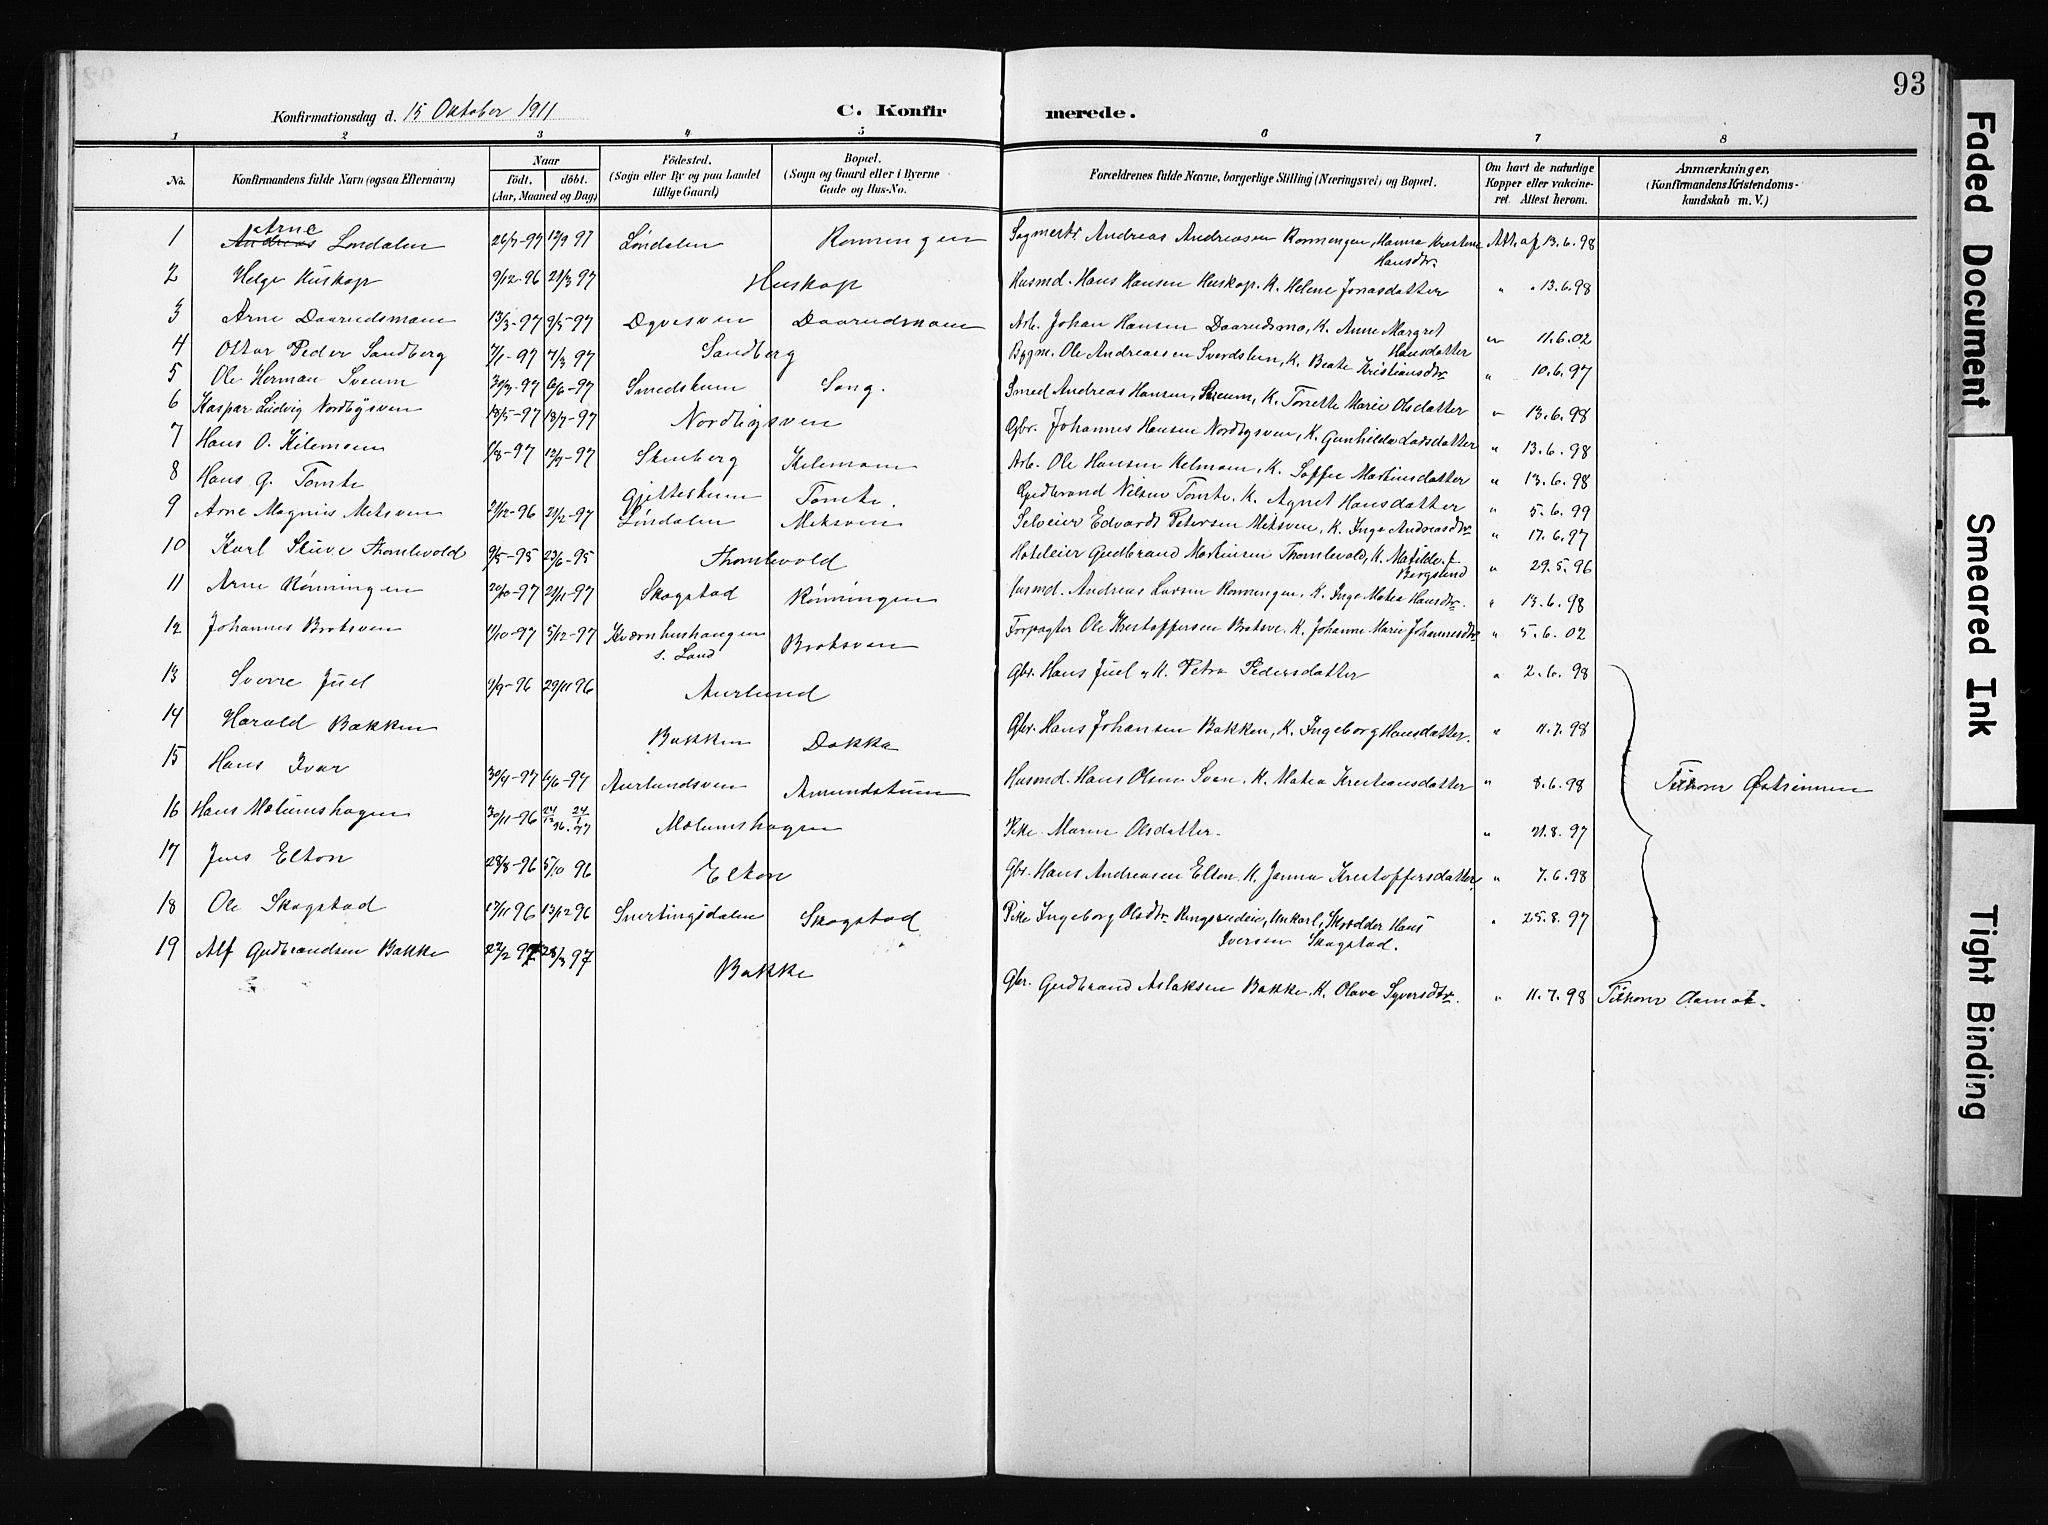 93
Konfirmationsdag d. 15 Oktober 1911 C. Konfirmerede.
1 2 3 4 5 6 7 8
No. Konfirmandens fulde Navn (ogsaa Efternavn) Naar födt. döbt. (Aar, Maaned og Dag) Födested. (Sogn eller By og paa Landet tillige Gaard) Bopæl. (Sogn og Gaard eller i Byerne Gade og Hus-No. Forældrenes fulde Navne, borgerlige Stilling (Næringsvei) og Bopæl. Om havt de naturlige Kopper eller vakcineret. Attest herom. Anmærkninger, (Konfirmandens Kristendomskundskab m. V.)
1 Andreas Arne Løndalen 26/7-97 12/9 97 Løndalen Rønningen Sagmestr. Andreas Andreasen Rønningen, Hanna Kristine Hansdtr. Att. af 13.6.98
2 Helge Huskap 9/12-96 21/3 97 Huskap Husmd. Hans Hansen Huskap. K. Helene Jonasdatter " " 13.6.98
3 Arne Daarudsmoen 13/3-97 9/5-97 Daarudsmoen Arb. Johan Hansen Daarudsmo, K. Anne Margret Hansdatter " 11.6.02
4 Ottar Peder Sandberg 7/1-97 7/3 97 Sandberg Bygm. Ole Andreassen K. Beate Kristiansdtr. " 10.6.97
5 Ole Herman Sveum 30/3-97 6/6-97 Smedstuen Sang. Smed Andreas Hansen Sveum, K. Tonette Marie Olsdatter " 13.6.98
6 Kaspar Ludvig Nordbysven 13/5-97 18/7-97 Nordbysven Gbr. Johannes Hansen Nordbysven, K. Gunhilda Larsdatter " 13.6.98
7 Hans O. Kilemoen 1/8-97 12/9-97 Stenberg Kelemoen Arb. Ole Hansen Kelmoen, K. Soffie Martinusdatter " 13.6.98
8 Hans G. Tomte Gjetterhuen Tomte. Gudbrand Nilsen Tomte, K. Agnet Hansdatter " 5.6.99
9 Arne Magnus Metsven 21/12-96 21/2-97 Løndalen Metsven Selveier Edvardt Petersen Metsven, K. Inga Andreasdtr. " 17.6.97
10 Karl Stuve Thomlevold 9/5-95 23/6-95 Thomlevold Hoteleier Gudbrand Martinsen Thomlevold, K. Matilde f. Berglund " 29.5.96
11 Arne Rønningen 20/10-97 21/11-97 Skogstad Rønningen Husmd. Andreas Larsen Rønningen, K. Inge Matea Hansdtr. " 13.6.98
12 Johannes Brotsven 11/10-97 5/12-97 Kværnhushaugen s. Land Brotsven Forpagter Ole Kristoffersen Brotsve. K. Johanne Marie Johannesdtr. " 5.6.02
13 Sverre Juel 11/9-96 29/11 96 Aurlund Gbr. Hans Juel & K. Petra Pedersdatter " 2.6.98
14 Harald Bakken Bakken Dokka Gbr. Hans Johansen Bakken, K. Ingeborg Hansdatter. " 11.7.98
15 Hans Ivar 30/4-97 6/6-97 Aurlundsven Aurundstuen Husmd. Hans Olsen Sven. K. Matea Kristiansdatter " 8.6.98 Tilhører Østsinnen
16 Hans Mælumshagen 30/11-96 24/12 96. 24/1 97 Mælumshagen Pike Maren Olsdatter " 21.8.97
17 Jens Elton 28/8-96 5/10 96 Elton Gbr. Hans Andreasen Elton. K. Janna Kristoffersdatter " 7.6.98
18 Ole Skogstad 17/11 96 13/12 96 Snertingsdalen Skogstad Pike Ingeborg Olsdtr. Ringsrudeie, Unkarl, Skrædder Hans Iversen Skogstad. " 25.8.97
19 Alf Gudbrandsen Bakke 22/2 97 28/3 97 Bakke Gbr. Gudbrand Aslaksen Bakke. K. Olava Syversdtr. " 11.7.98 Tilhører Aamot.
Faded Document
Smeared Ink
Tight Binding